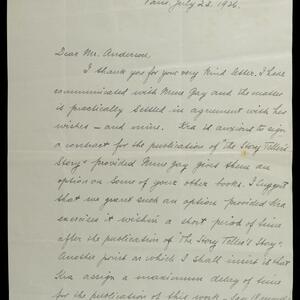 Paris, July 23, 1926.
Dear Mr. Anderson,
I thank you for your very kind letter. I have
communicated with Mme Gay and the matter
is practically settled in agreement with her
wishes – and mine. Kra is anxious to sign
a contract for the publication of "The Story Teller's
Story" provided Mme Gay gives them an
option on some of your other books. I suggest
that we grant such an option provided Kra
exercises it within a short period of time
after the publication of "The Story Teller's Story".
Another point on which I shall insist is that
Kra assign a maximum delay of time
for the publication of this work